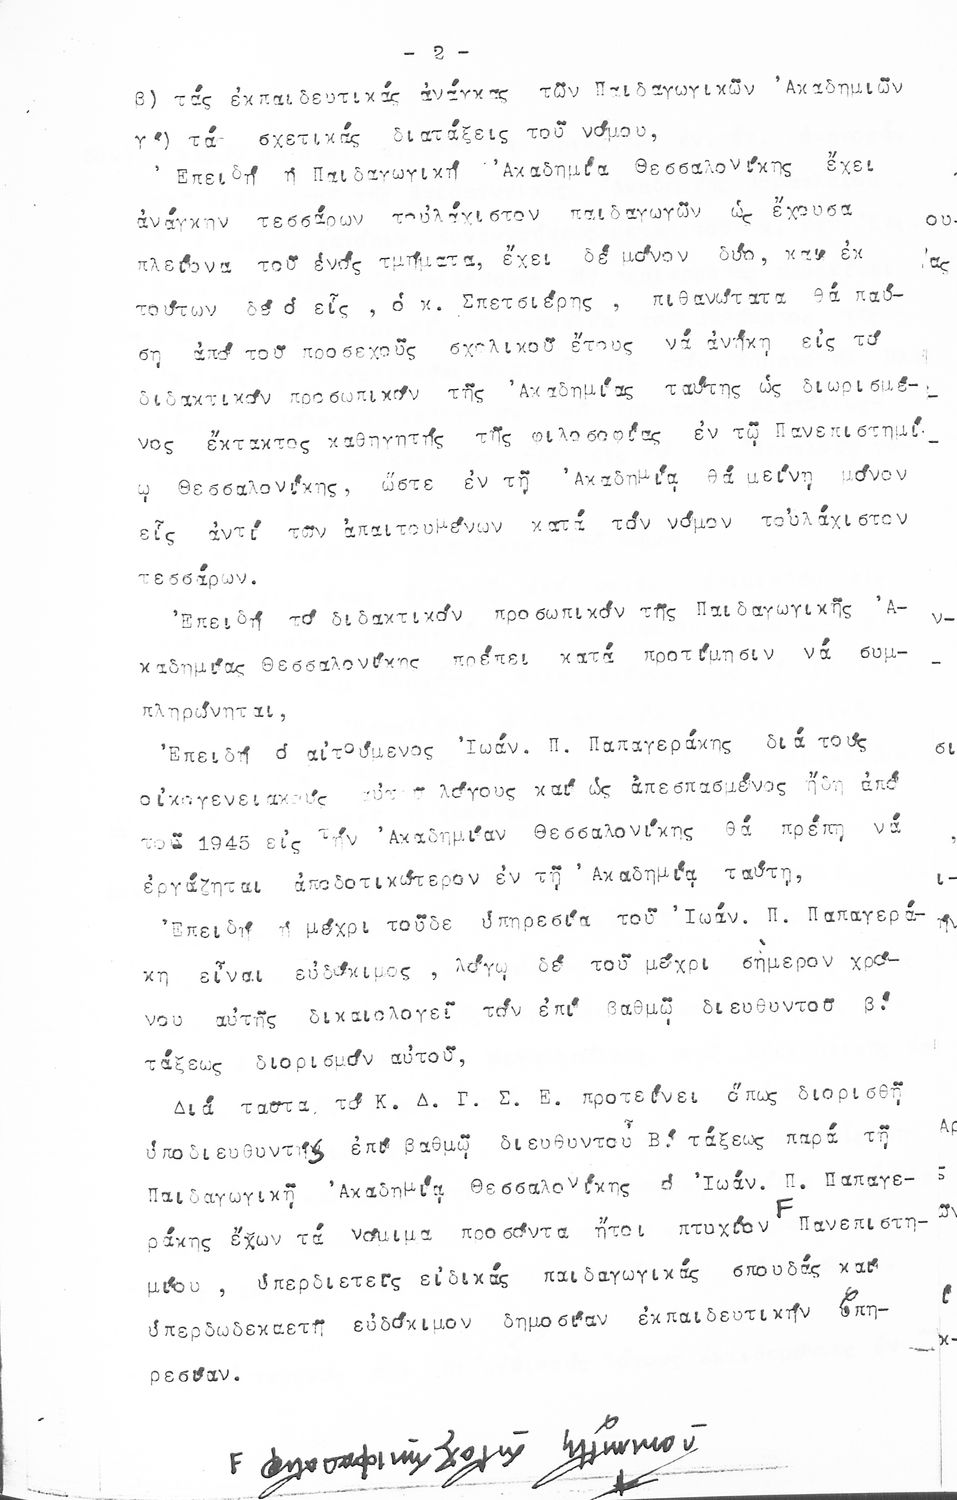 - 2 -
β) τάς ἐκπαιδευτικάς ἀνάγκας τῶν Παιδαγωγικῶν Ἀκαδημιῶν
γ') τά σχετικάς διατάξεις τοῦ νόμου,
Ἐπειδή ἡ Παιδαγωγική Ἀκαδημία Θεσσαλονίκης ἔχει
ἀνάγκην τεσσάρων τοὐλάχιστον παιδαγωγῶν ὡς ἔχουσα
πλείονα τοῦ ἑνός τμήματα, ἔχει δέ μόνον δύο, καί ἐκ
τούτων δέ ὁ εἷς , ὁ κ. Σπετσιέρης , πιθανώτατα θά παύ-
ση ἀπό τοῦ προσεχοῦς σχολικοῦ ἔτους νά ἀνήκη εἰς τό
διδακτικόν προσωπικόν τῆς Ἀκαδημίας ταύτης ὡς διωρισμέ-
νος ἔκτακτος καθηγητής τῆς φιλοσοφίας ἐν τῷ Πανεπιστημί-
ῳ Θεσσαλονίκης, ὥστε ἐν τῇ Ἀκαδημίᾳ θά μείνῃ μόνον
εἷς ἀντί τῶν ἀπαιτουμένων κατά τόν νόμον τοὐλάχιστον
τεσσάρων.
Ἐπειδή τό διδακτικόν προσωπικόν τῆς Παιδαγωγικῆς Ἀ-
καδημίας Θεσσαλονίκης πρέπει κατά προτίμησιν νά συμ-
πληρώνηται,
Ἐπειδή ὁ αἰτούμενος Ἰωάν. Π. Παπαγεράκης διά τούς
οἰκογενειακούς λόγους καί ὡς ἀπεσπασμένος ἤδη ἀπό
τοῦ 1945 εἰς τήν Ἀκαδημίαν Θεσσαλονίκης θά πρέπη νά
ἐργάζηται ἀποδοτικώτερον ἐν τῇ Ἀκαδημίᾳ ταύτῃ,
Ἐπειδή ἡ μέχρι τοῦδε ὑπηρεσία τοῦ Ἰωάν. Π. Παπαγερά-
κη εἶναι εὐδόκιμος , λόγῳ δέ τοῦ μέχρι σήμερον χρό-
νου αὐτῆς δικαιολογεῖ τόν ἐπί βαθμῷ διευθυντοῦ β!
τάξεως διορισμόν αὐτοῦ,
Διά ταῦτα, τό Κ. Δ. Γ. Σ. Ε. προτείνει ὅπως διορισθῇ
ὑποδιευθυντής ἐπί βαθμῷ διευθυντοῦ Β! τάξεως παρά τῇ
Παιδαγωγικῇ Ἀκαδημίᾳ Θεσσαλονίκης ὁ Ἰωάν. Π. Παπαγε-
ράκης ἔχων τά νόμιμα προσόντα ἤτοι πτυχίον Γ Πανεπιστη-
μίου , ὑπερδιετεῖς εἰδικάς παιδαγωγικάς σπουδάς καί
ὑπερδωδεκαετῆ εὐδόκιμον δημοσίαν ἐκπαιδευτικήν ὑπη-
ρεσίαν.